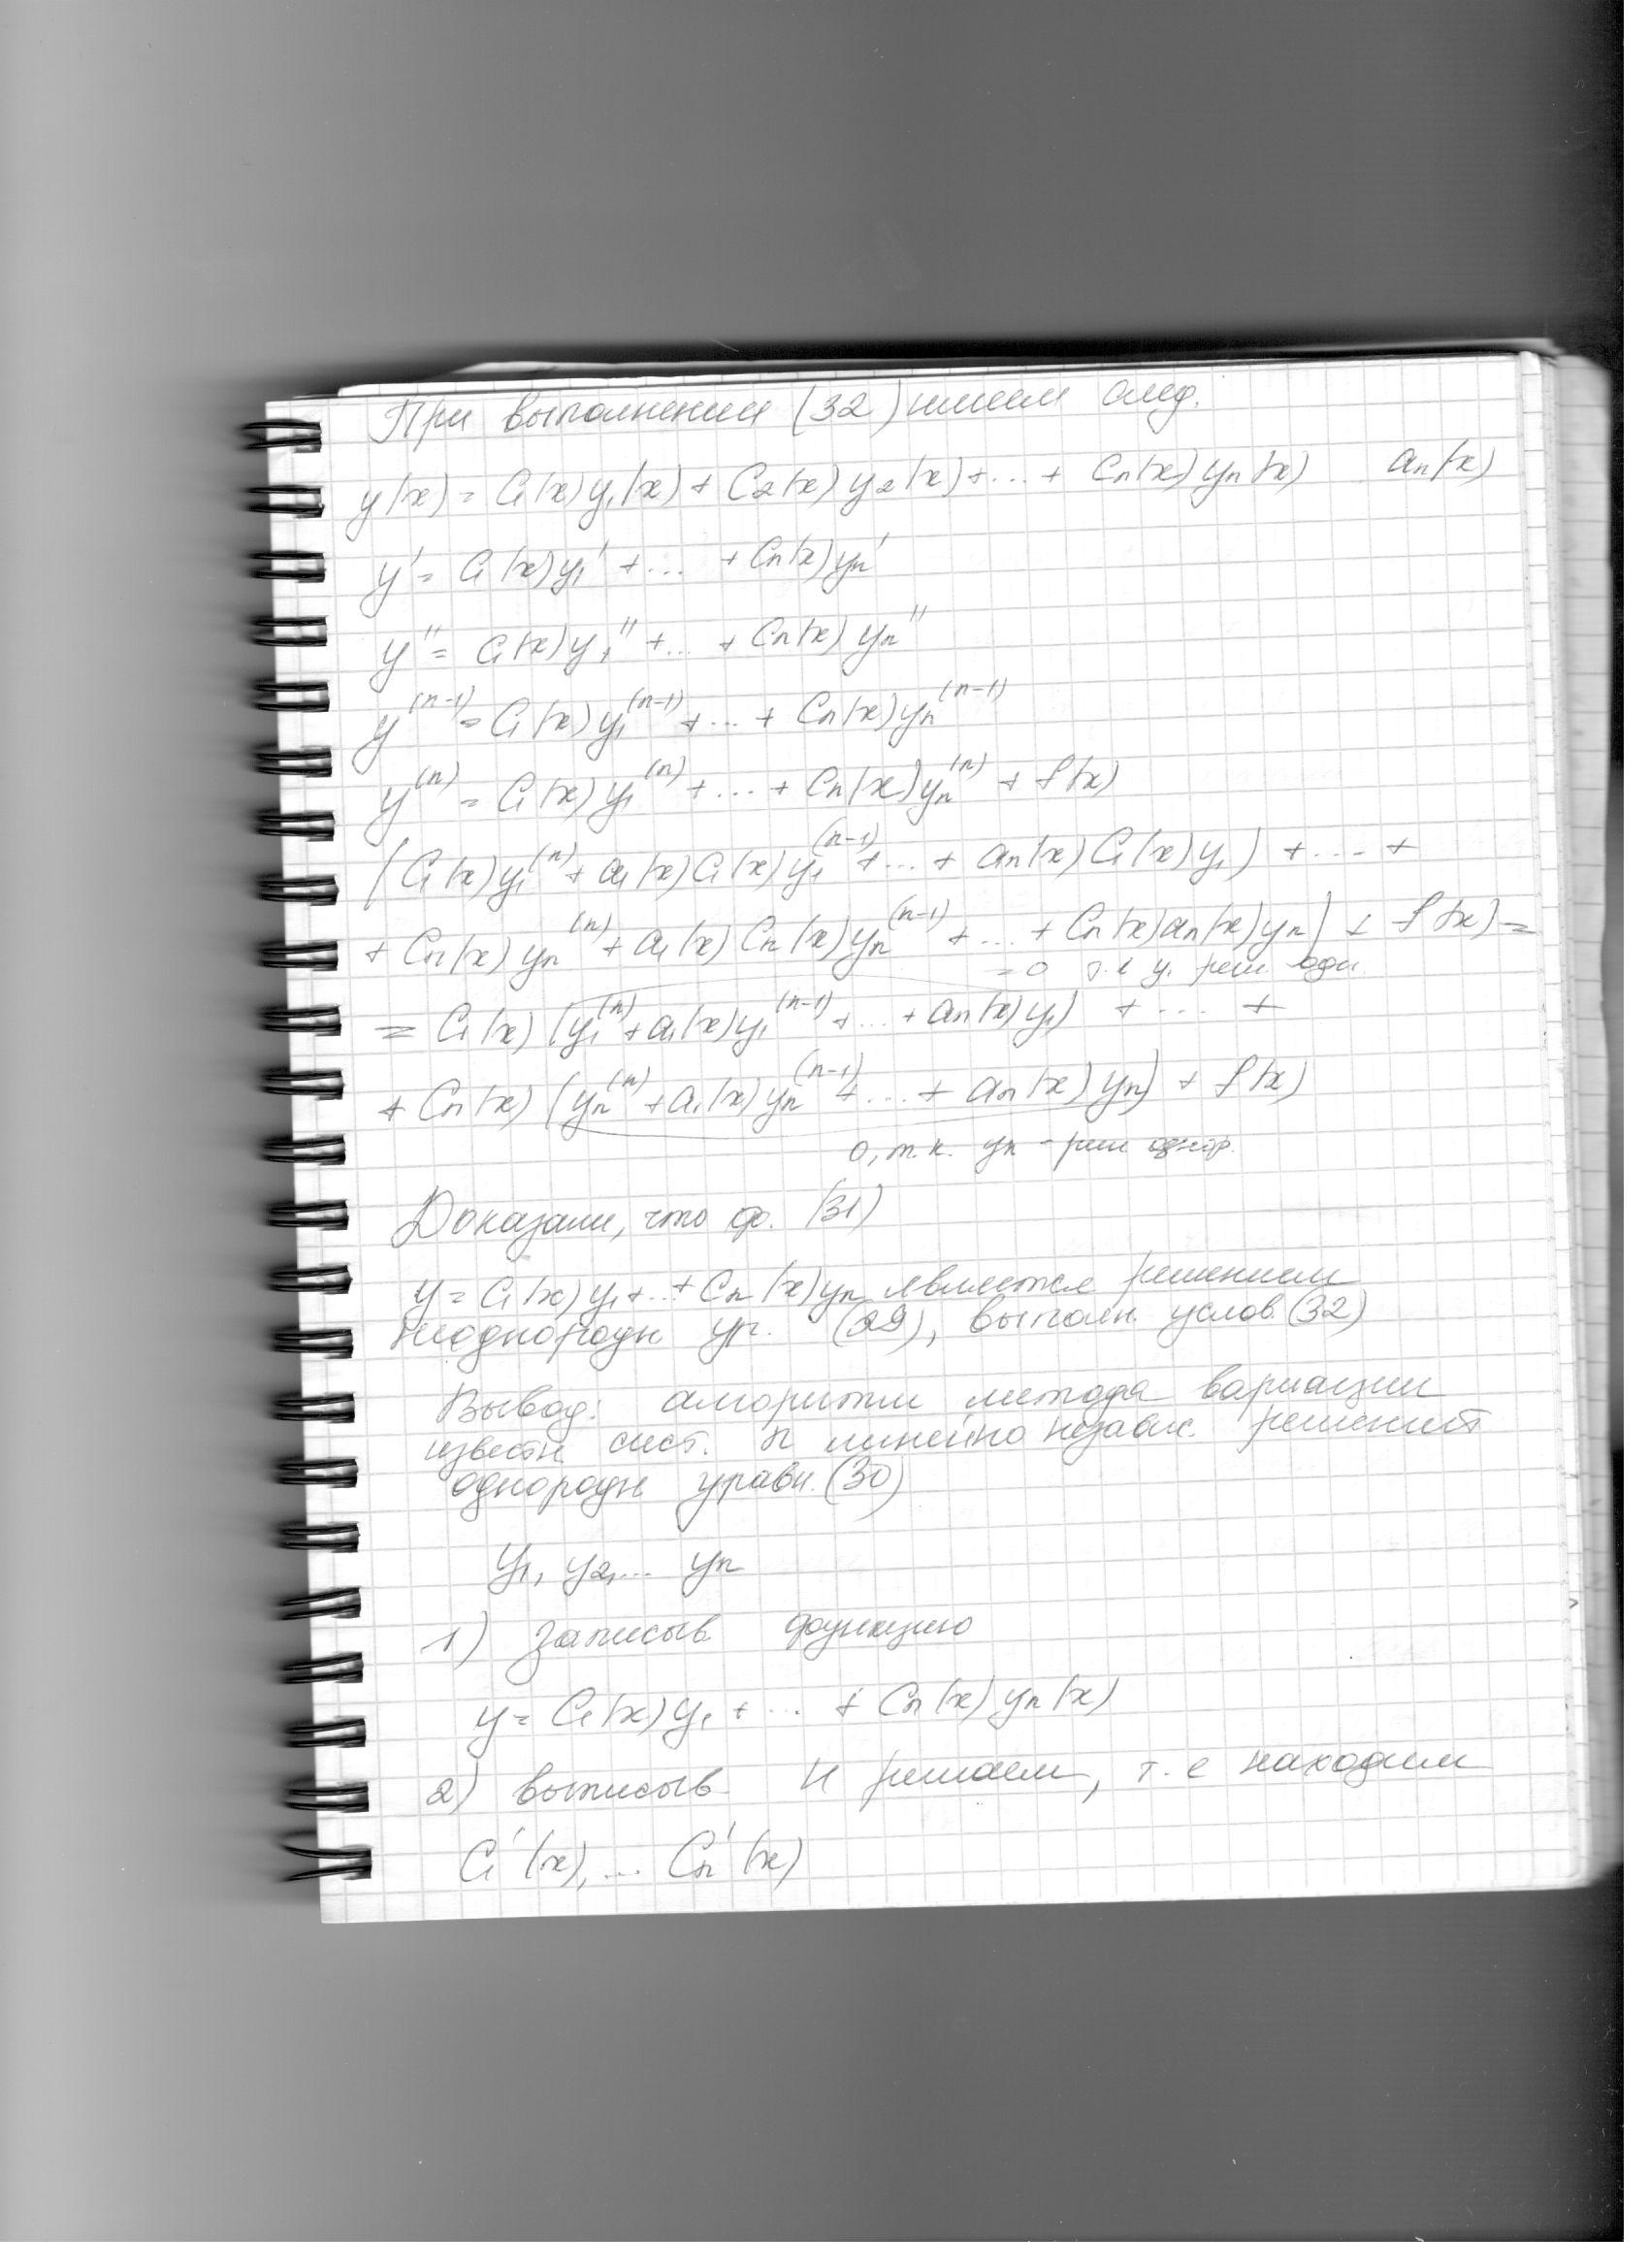 При выполнении (32) имеем след.
y(x) = C₁(x)y₁(x) + C₂(x)y₂(x) + ... + Cₙ(x)yₙ(x) aₙ(x)
y' = C₁(x)y₁' + ... + Cₙ(x)yₙ'
y'' = C₁(x)y₁'' + ... + Cₙ(x)yₙ''
y⁽ⁿ⁻¹⁾ = C₁(x)y₁⁽ⁿ⁻¹⁾ + ... + Cₙ(x)yₙ⁽ⁿ⁻¹⁾
y⁽ⁿ⁾ = C₁(x)y₁⁽ⁿ⁾ + ... + Cₙ(x)yₙ⁽ⁿ⁾ + f(x)
(C₁(x)y₁⁽ⁿ⁾ + a₁(x)C₁(x)y₁⁽ⁿ⁻¹⁾ + ... + aₙ(x)C₁(x)y₁) + ... +
+ Cₙ(x)yₙ⁽ⁿ⁾ + a₁(x)Cₙ(x)yₙ⁽ⁿ⁻¹⁾ + ... + Cₙ(x)aₙ(x)yₙ) + f(x) =
= 0 т.к y₁ реш. одн.
= C₁(x)(y₁⁽ⁿ⁾ + a₁(x)y₁⁽ⁿ⁻¹⁾ + ... + aₙ(x)y₁) + ... +
+ Cₙ(x)(yₙ⁽ⁿ⁾ + a₁(x)yₙ⁽ⁿ⁻¹⁾ + ... + aₙ(x)yₙ) + f(x)
0, т.к. yₙ - реш однор.
Доказали, что ф. (31)
y = C₁(x)y₁ + ... + Cₙ(x)yₙ является решением
неоднородн ур. (29), выполн. услов. (32)
Вывод: алгоритм метода вариации
известн сист. n линейно независ. решений
однородн уравн. (30)
y₁, y₂, ... yₙ
1) Записыв функцию
y = C₁(x)y₁ + ... + Cₙ(x)yₙ(x)
2) выписыв и решаем, т.е находим
C₁'(x), ... Cₙ'(x)